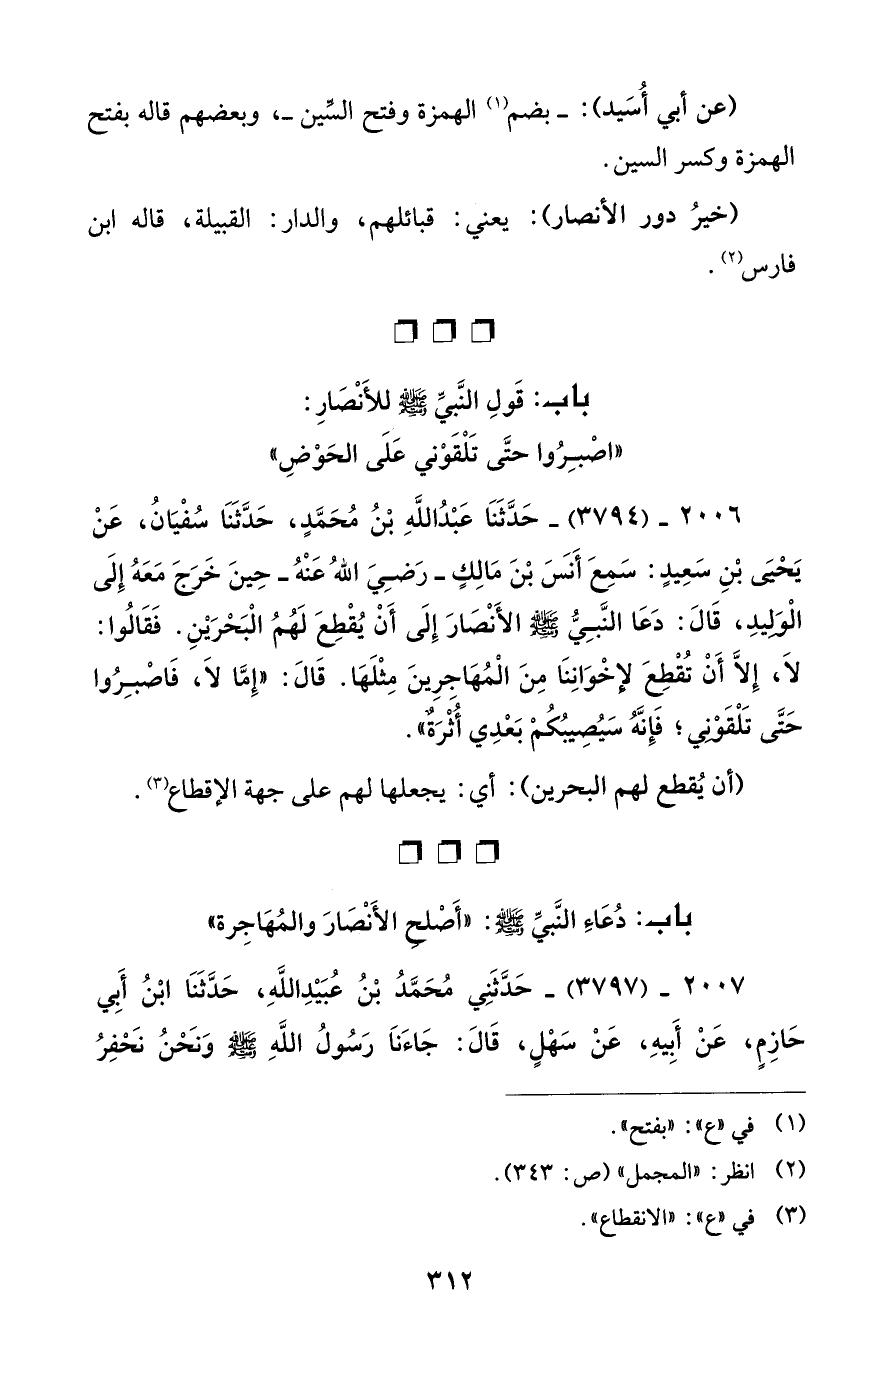 (عن أبي أُسَيد): ـ بضم(١) الهمزة وفتح السِّين ـ، وبعضهم قاله بفتح
الهمزة وكسر السين.
(خيرُ دور الأنصار): يعني: قبائلهم، والدار: القبيلة، قاله ابن
فارس(٢).
باب: قَولِ النَّبيِّ ﷺ للأَنْصَارِ:
«اصْبِرُوا حتَّى تَلْقَوْني عَلَى الحَوْضِ»
٢٠٠٦ ـ (٣٧٩٤) ـ حَدَّثَنَا عَبْدُاللَّهِ بْنُ مُحَمَّدٍ، حَدَّثَنَا سُفْيَانُ، عَنْ
يَحْيَى بْنِ سَعِيدٍ: سَمِعَ أَنَسَ بْنَ مَالِكٍ ـ رَضِيَ اللهُ عَنْهُ ـ حِينَ خَرَجَ مَعَهُ إِلَى
الْوَلِيدِ، قَالَ: دَعَا النَّبِيُّ ﷺ الأَنْصَارَ إِلَى أَنْ يُقْطِعَ لَهُمُ الْبَحْرَيْنِ. فَقَالُوا:
لاَ، إِلاَّ أَنْ تُقْطِعَ لإِخْوَانِنَا مِنَ الْمُهَاجِرِينَ مِثْلَهَا. قَالَ: «إِمَّا لاَ، فَاصْبِرُوا
حَتَّى تَلْقَوْنِي؛ فَإِنَّهُ سَيُصِيبُكُمْ بَعْدِي أُثْرَةٌ».
(أن يُقطع لهم البحرين): أي: يجعلها لهم على جهة الإقطاع(٣).
باب: دُعَاءِ النَّبيِّ ﷺ: «أَصْلحِ الأَنْصَارَ والمُهَاجِرة»
٢٠٠٧ ـ (٣٧٩٧) ـ حَدَّثَنِي مُحَمَّدُ بْنُ عُبَيْدِاللَّهِ، حَدَّثَنَا ابْنُ أَبِي
حَازِمٍ، عَنْ أَبِيهِ، عَنْ سَهْلٍ، قَالَ: جَاءَنَا رَسُولُ اللَّهِ ﷺ وَنَحْنُ نَحْفِرُ
(١) في «ع»: «بفتح».
(٢) انظر: «المجمل» (ص: ٣٤٣).
(٣) في «ع»: «الانقطاع».
٣١٢